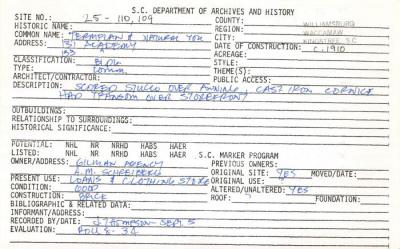 S.C. DEPARTMENT OF ARCHIVES AND HISTORY
SITE NO.: 25-110,109 COUNTY: WILLIAMSBURG
HISTORIC NAME: REGION: WACCAMAW
COMMON NAME: TERMPLAN & NATURAL YOU CITY: KINGSTREE, S.C.
ADDRESS: 131 ACADEMY DATE OF CONSTRUCTION: C.1910
133 ACREAGE:
CLASSIFICATION: BLDG STYLE:
TYPE: COMM. THEME(S):
ARCHITECT/CONTRACTOR: PUBLIC ACCESS:
DESCRIPTION: SCORED STUCCO OVER AWNING, CAST IRON CORNICE
HAD TRANSOM OVER STOREFRONT
OUTBUILDINGS:
RELATIONSHIP TO SURROUNDINGS:
HISTORICAL SIGNIFICANCE:
POTENTIAL: NHL NR NRHD HABS HAER
LISTED: NHL NR NRHD HABS HAER S.C. MARKER PROGRAM
OWNER/ADDRESS: GILMAN AGENCY PREVIOUS OWNERS:
A.M. SCHREIBERG ORIGINAL SITE: YES MOVED/DATE:
PRESENT USE: LOANS & CLOTHING STORE ORIGINAL USE:
CONDITION: GOOD ALTERED/UNALTERED: YES
CONSTRUCTION: BRICK ROOF: FOUNDATION:
BIBLIOGRAPHIC & RELATED DATA:
INFORMANT/ADDRESS:
RECORDED BY/DATE: J. THOMPSON -
EVALUATION: ROLL 8-34